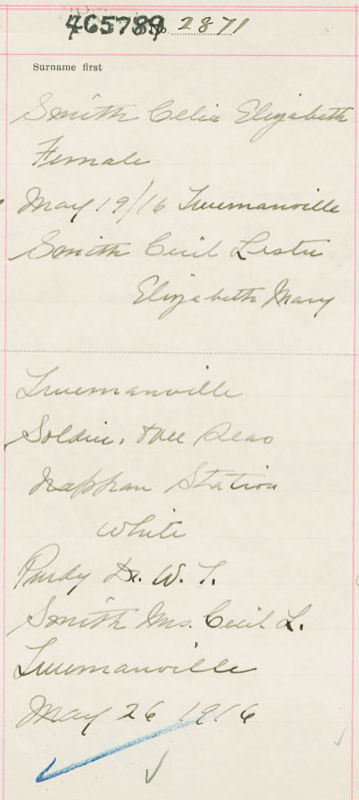 465789 2871
Surname first
Smith Celia Elizabeth
Female
May 19/16 Truemanville
Smith Cecil Lester
Elizabeth Mary
Truemanville
Soldier,
Nappan Station
White
Purdy Dr. W. T.
Smith Mrs. Cecil L.
Truemanville
May 26 1916